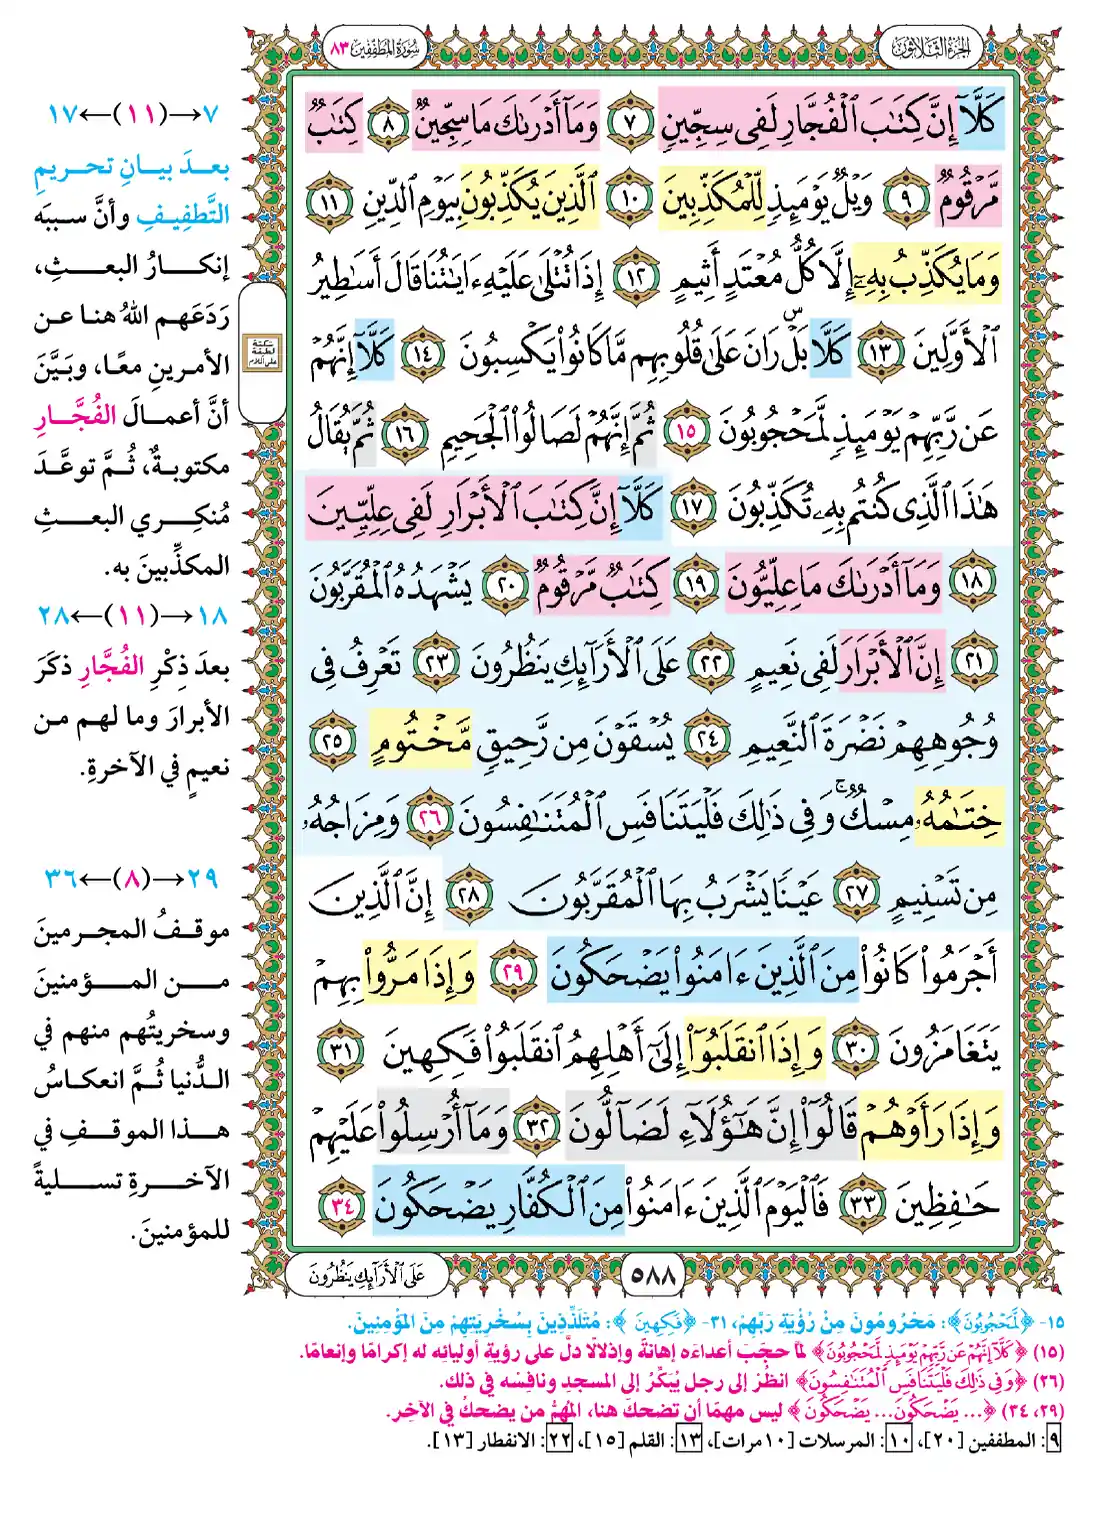 الجزء الثلاثون
سورة المطففين ٨٣
كَلَّآ إِنَّ كِتَٰبَ ٱلْفُجَّارِ لَفِى سِجِّينٍ ٧ وَمَآ أَدْرَىٰكَ مَا سِجِّينٌ ٨ كِتَٰبٌ
مَّرْقُومٌ ٩ وَيْلٌ يَوْمَئِذٍ لِّلْمُكَذِّبِينَ ١٠ ٱلَّذِينَ يُكَذِّبُونَ بِيَوْمِ ٱلدِّينِ ١١
وَمَا يُكَذِّبُ بِهِۦٓ إِلَّا كُلُّ مُعْتَدٍ أَثِيمٍ ١٢ إِذَا تُتْلَىٰ عَلَيْهِ ءَايَٰتُنَا قَالَ أَسَٰطِيرُ
ٱلْأَوَّلِينَ ١٣ كَلَّا بَلْ ۜ رَانَ عَلَىٰ قُلُوبِهِم مَّا كَانُوا۟ يَكْسِبُونَ ١٤ كَلَّآ إِنَّهُمْ
عَن رَّبِّهِمْ يَوْمَئِذٍ لَّمَحْجُوبُونَ ١٥ ثُمَّ إِنَّهُمْ لَصَالُوا۟ ٱلْجَحِيمِ ١٦ ثُمَّ يُقَالُ
هَٰذَا ٱلَّذِى كُنتُم بِهِۦ تُكَذِّبُونَ ١٧ كَلَّآ إِنَّ كِتَٰبَ ٱلْأَبْرَارِ لَفِى عِلِّيِّينَ
١٨ وَمَآ أَدْرَىٰكَ مَا عِلِّيُّونَ ١٩ كِتَٰبٌ مَّرْقُومٌ ٢٠ يَشْهَدُهُ ٱلْمُقَرَّبُونَ
٢١ إِنَّ ٱلْأَبْرَارَ لَفِى نَعِيمٍ ٢٢ عَلَى ٱلْأَرَآئِكِ يَنظُرُونَ ٢٣ تَعْرِفُ فِى
وُجُوهِهِمْ نَضْرَةَ ٱلنَّعِيمِ ٢٤ يُسْقَوْنَ مِن رَّحِيقٍ مَّخْتُومٍ ٢٥
خِتَٰمُهُۥ مِسْكٌ ۚ وَفِى ذَٰلِكَ فَلْيَتَنَافَسِ ٱلْمُتَنَٰفِسُونَ ٢٦ وَمِزَاجُهُۥ
مِن تَسْنِيمٍ ٢٧ عَيْنًا يَشْرَبُ بِهَا ٱلْمُقَرَّبُونَ ٢٨ إِنَّ ٱلَّذِينَ
أَجْرَمُوا۟ كَانُوا۟ مِنَ ٱلَّذِينَ ءَامَنُوا۟ يَضْحَكُونَ ٢٩ وَإِذَا مَرُّوا۟ بِهِمْ
يَتَغَامَزُونَ ٣٠ وَإِذَا ٱنقَلَبُوٓا۟ إِلَىٰٓ أَهْلِهِمُ ٱنقَلَبُوا۟ فَكِهِينَ ٣١
وَإِذَا رَأَوْهُمْ قَالُوٓا۟ إِنَّ هَٰٓؤُلَآءِ لَضَآلُّونَ ٣٢ وَمَآ أُرْسِلُوا۟ عَلَيْهِمْ
حَٰفِظِينَ ٣٣ فَٱلْيَوْمَ ٱلَّذِينَ ءَامَنُوا۟ مِنَ ٱلْكُفَّارِ يَضْحَكُونَ ٣٤
سكتة
لطيفة
على اللام
٧→(١١)←١٧
بعدَ بيانِ تحريمِ
التَّطفِيفِ وأنَّ سببَه
إنكارُ البعثِ،
رَدَعَهم اللهُ هنا عن
الأمرينِ معًا، وبَيَّنَ
أنَّ أعمالَ الفُجَّارِ
مكتوبةٌ، ثُمَّ توعَّدَ
مُنكِري البعثِ
المكذِّبينَ به.
١٨→(١١)←٢٨
بعدَ ذِكْرِ الفُجَّارِ ذكَرَ
الأبرارَ وما لهم من
نعيمٍ في الآخرةِ.
٢٩→(٨)←٣٦
موقفُ المجرمينَ
من المؤمنينَ
وسخريتُهم منهم في
الدُّنيا ثُمَّ انعكاسُ
هذا الموقفِ في
الآخرةِ تسليةً
للمؤمنينَ.
٥٨٨
عَلَى ٱلْأَرَآئِكِ يَنظُرُونَ
١٥- ﴿لَّمَحْجُوبُونَ﴾: مَحْرُومُونَ مِنْ رُؤْيَةِ رَبِّهِمْ، ٣١- ﴿فَكِهِينَ﴾: مُتَلَذِّذِينَ بِسُخْرِيَتِهِمْ مِنَ الْمُؤْمِنِينَ.
(١٥) ﴿كَلَّآ إِنَّهُمْ عَن رَّبِّهِمْ يَوْمَئِذٍ لَّمَحْجُوبُونَ﴾ لمَّا حجَبَ أعداءَه إهانةً وإذلالًا دلَّ على رؤيةِ أوليائِه له إكرامًا وإنعامًا.
(٢٦) ﴿وَفِى ذَٰلِكَ فَلْيَتَنَافَسِ ٱلْمُتَنَٰفِسُونَ﴾ انظُرْ إلى رجلٍ يُبَكِّرُ إلى المسجدِ ونافِسْه في ذلك.
(٢٩، ٣٤) ﴿... يَضْحَكُونَ... يَضْحَكُونَ﴾ ليس مهمًا أن تضحكَ هنا، المُهِمُّ من يضحكُ في الآخِرِ.
٩: المطففين [٢٠]، ١٠: المرسلات [١٠مرات]، ١٣: القلم [١٥]، ٢٢: الانفطار [١٣].